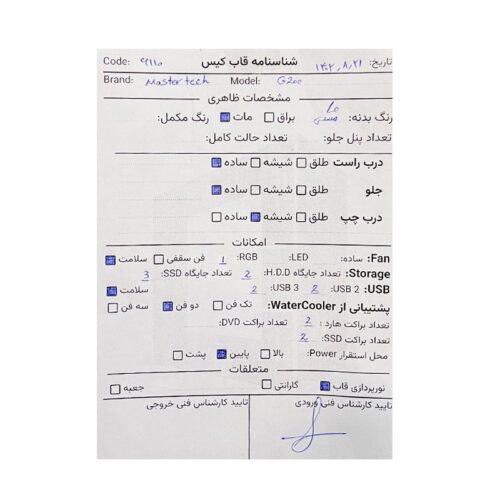 تاریخ: ۱۴۰۲,۸,۲۱ شناسنامه قاب کیس Code: ۹۱۱۰
Brand: Mastertech Model: G200
مشخصات ظاهری
رنگ بدنه: براق مات رنگ مکمل:
تعداد پنل جلو: تعداد حالت کامل:
درب راست طلق شیشه ساده
جلو طلق شیشه ساده
درب چپ طلق شیشه ساده
امکانات
Fan: ساده: LED: RGB: 1 فن سقفی سلامت
Storage: تعداد جایگاه H.D.D: 2 تعداد جایگاه SSD: 3
USB: USB 2: 2 USB 3: 2 سلامت
پشتیبانی از WaterCooler: تک فن دو فن سه فن
تعداد براکت هارد: 2 تعداد براکت DVD:
تعداد براکت SSD: 2
محل استقرار Power: بالا پایین پشت
متعلقات
نورپردازی قاب گارانتی جعبه
تایید کارشناس فنی ورودی تایید کارشناس فنی خروجی